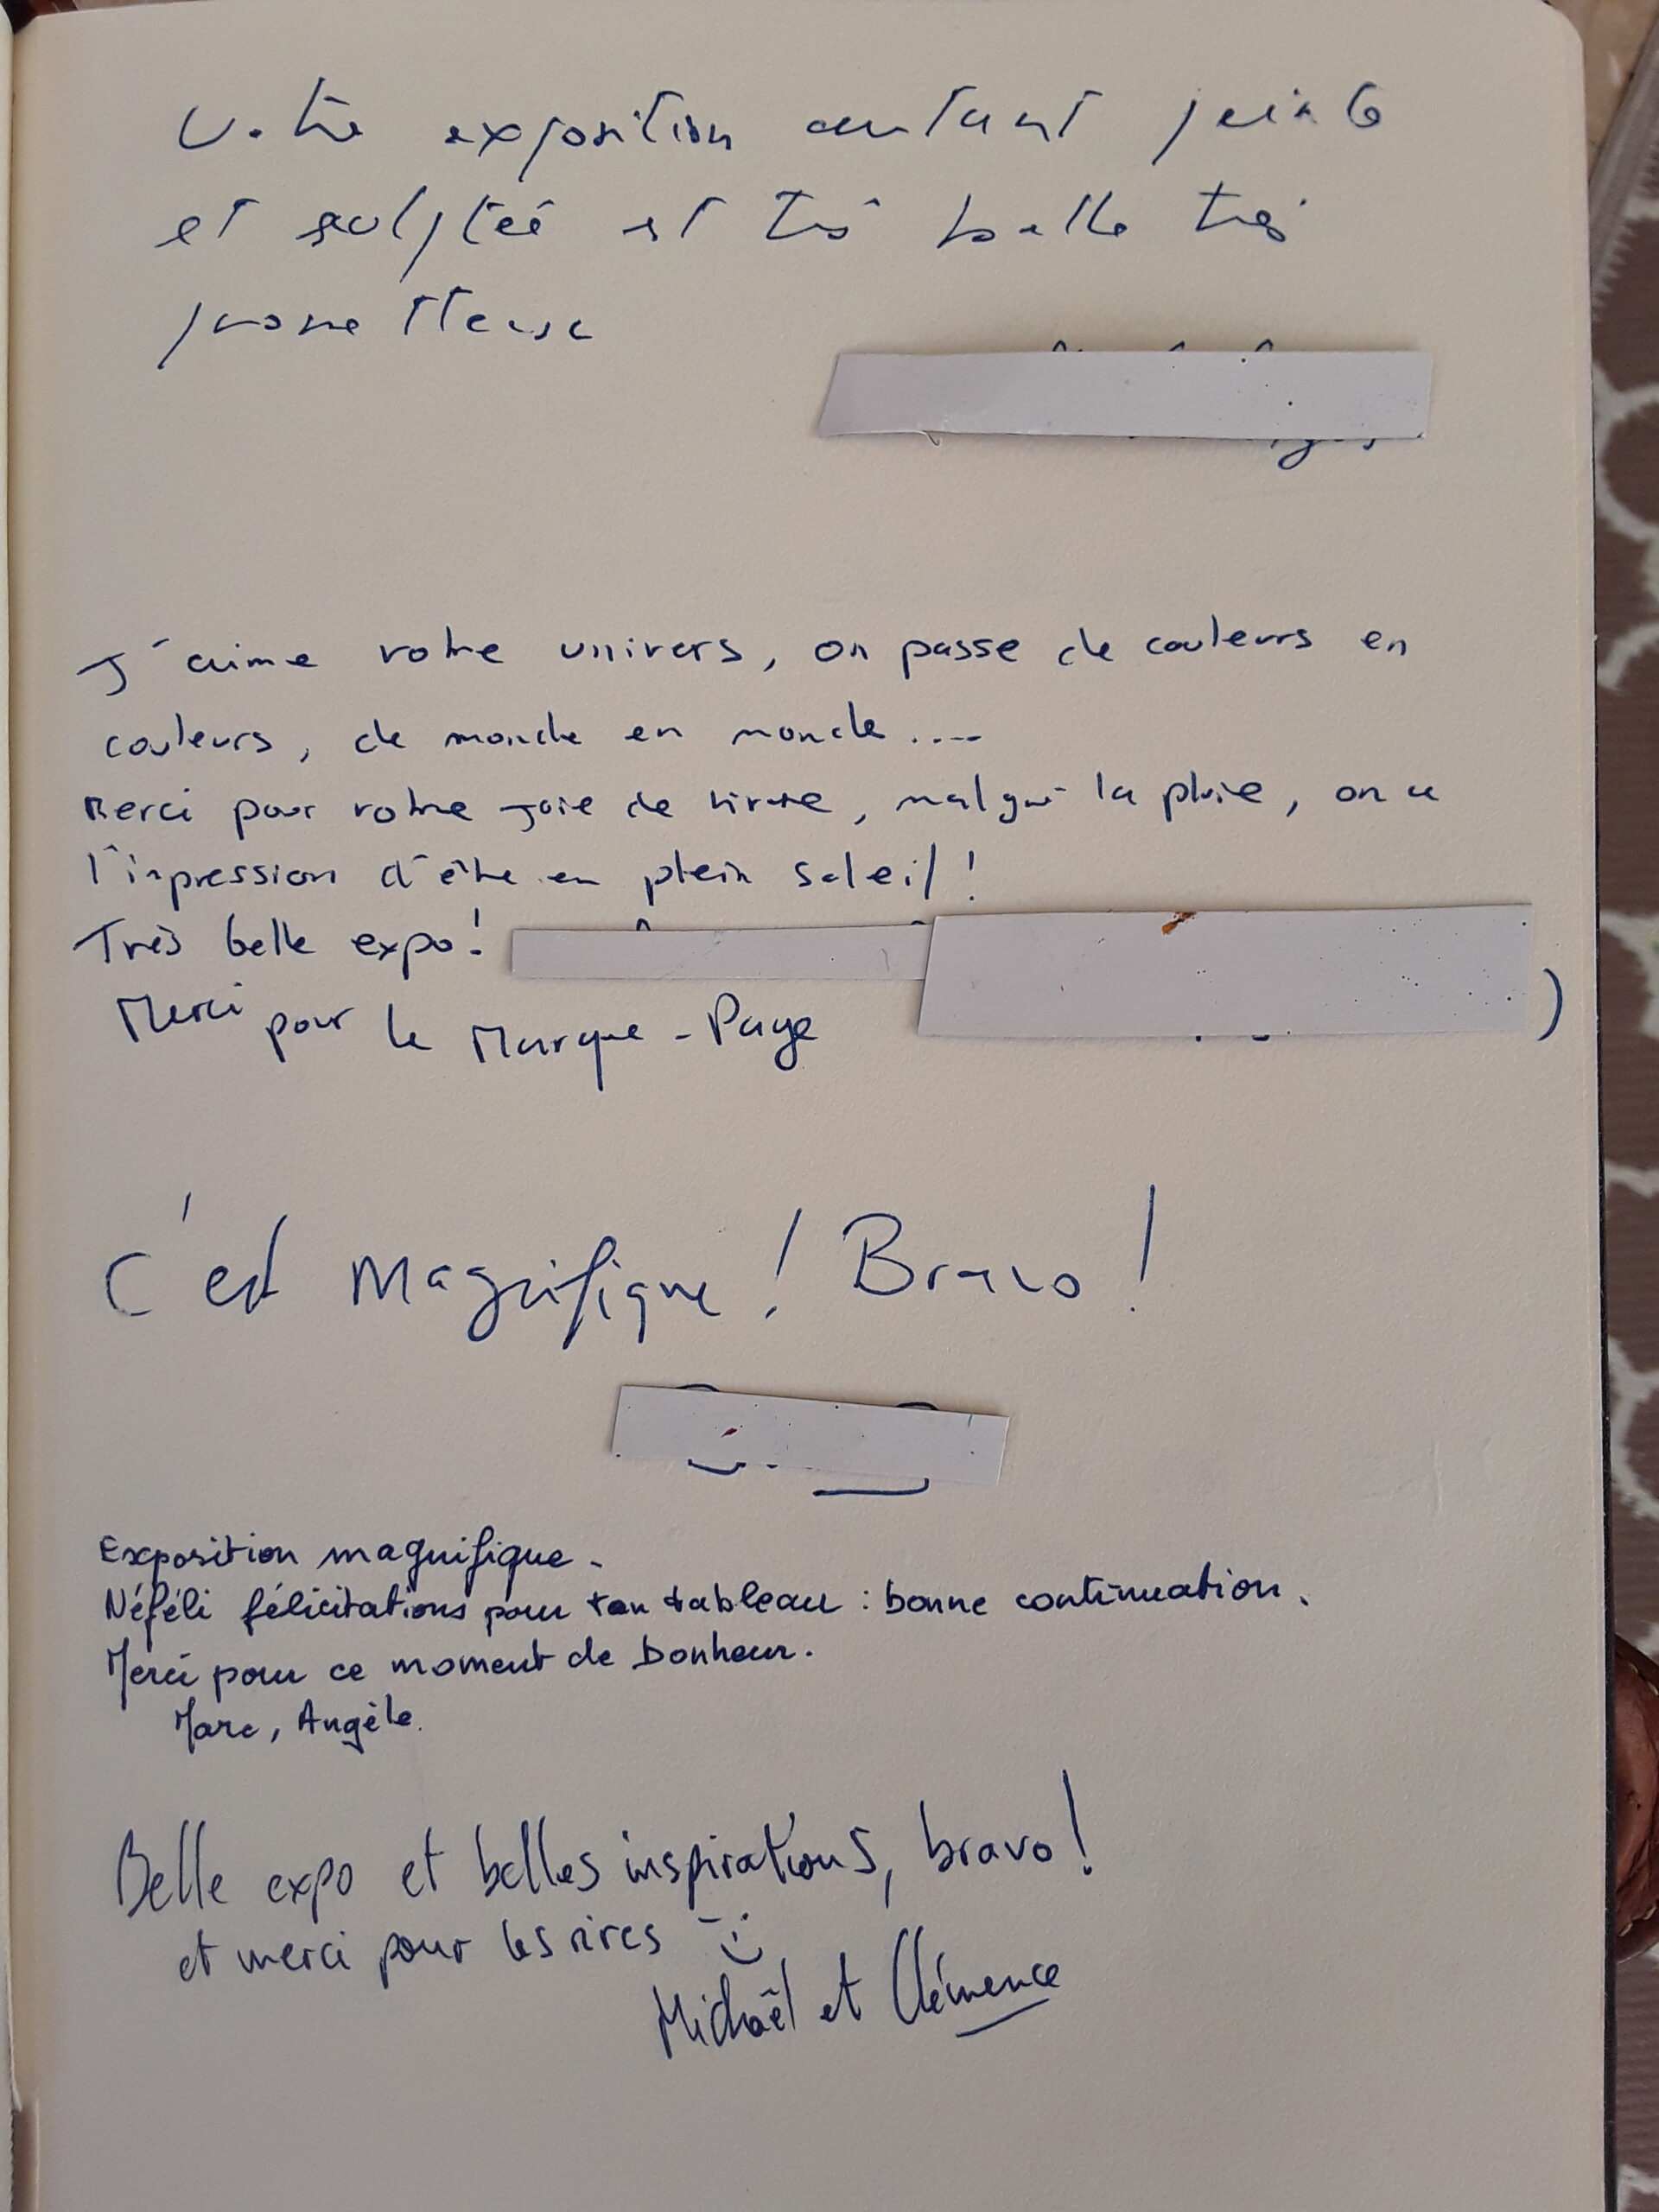 Votre exposition autant peinte
et sculptée est très belle très
prometteuse
J'aime votre univers, on passe de couleurs en
couleurs, de monde en monde....
Merci pour votre joie de vivre, malgré la pluie, on a
l'impression d'être en plein soleil !
Très belle expo !
Merci pour le Marque-Page )
C'est Magnifique ! Bravo !
Exposition magnifique.
Néféli félicitations pour ton tableau : bonne continuation.
Merci pour ce moment de bonheur.
Marc, Angèle.
Belle expo et belles inspirations, bravo !
et merci pour les rires :)
Michaël et Clémence